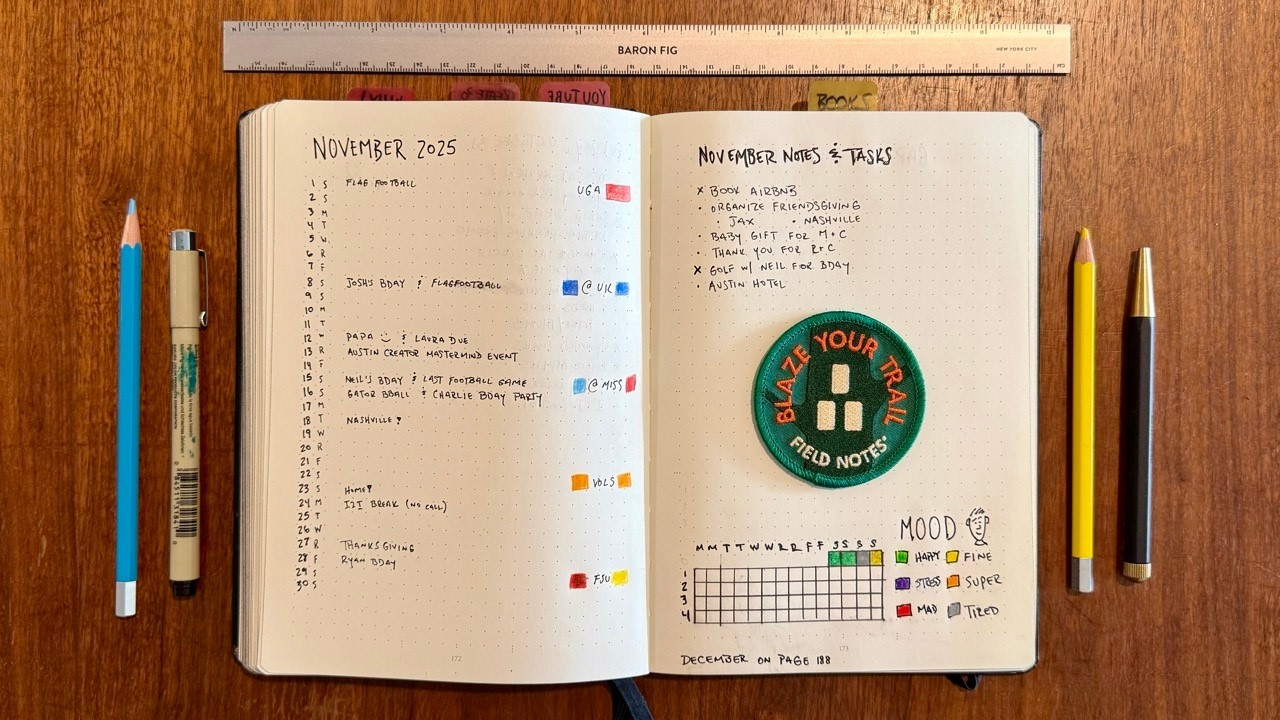 BARON FIG
NEW YORK CITY
YOUTUBE
BOOKS
NOVEMBER 2025
1 S FLAG FOOTBALL UGA
2 S
3 M
4 T
5 W
6 R
7 F
8 S JOSH'S BDAY & FLAGFOOTBALL @ UK
9 S
10 M
11 T
12 W PAPA & LAURA DUE
13 R AUSTIN CREATOR MASTERMIND EVENT
14 F
15 S NEIL'S BDAY & LAST FOOTBALL GAME @ MISS
16 S GATOR BBALL & CHARLIE BDAY PARTY
17 M
18 T NASHVILLE?
19 W
20 R
21 F
22 S VOLS
23 S HOME?
24 M I2I BREAK (NO CALL)
25 T
26 W
27 R THANKSGIVING
28 F RYAN BDAY
29 S FSU
30 S
172
NOVEMBER NOTES & TASKS
× BOOK AIRBNB
· ORGANIZE FRIENDSGIVING
· JAX · NASHVILLE
· BABY GIFT FOR M + C
· THANK YOU FOR R + C
× GOLF W/ NEIL FOR BDAY
· AUSTIN HOTEL
BLAZE YOUR TRAIL
FIELD NOTES
MOOD
M M T T W W R R F F S S S S
HAPPY FINE
STRESS SUPER
MAD TIRED
1
2
3
4
173
DECEMBER ON PAGE 188